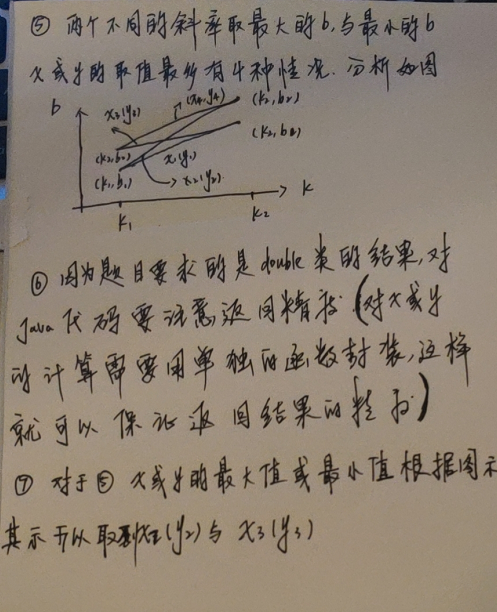 ⑤ 两个不同的斜率取最大的b,与最小的b
x或y的取值最多有4种情况.分析如图
b
x3(y3)
(x4,y4)
(k2,b2)
(k2,b2)
(k1,b2)
x1(y1)
(k1,b1)
x2(y2)
k
k1
k2
⑥ 因为题目要求的是double类的结果,对
Java代码要注意返回精度(对x或y
的计算需要用单独的函数封装,这样
就可以保证返回结果的精度)
⑦ 对于⑤ x或y的最大值或最小值根据图示
其示可以取到x2(y2)与x3(y3)